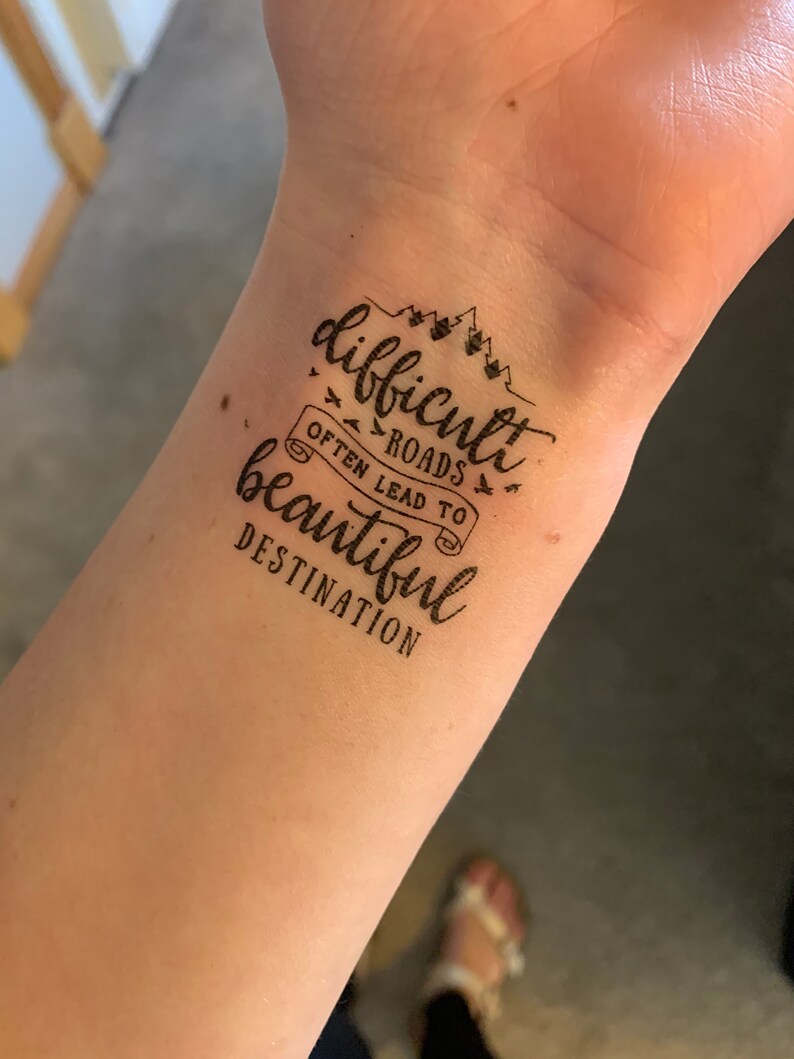 difficult
ROADS
OFTEN LEAD TO
beautiful
DESTINATION